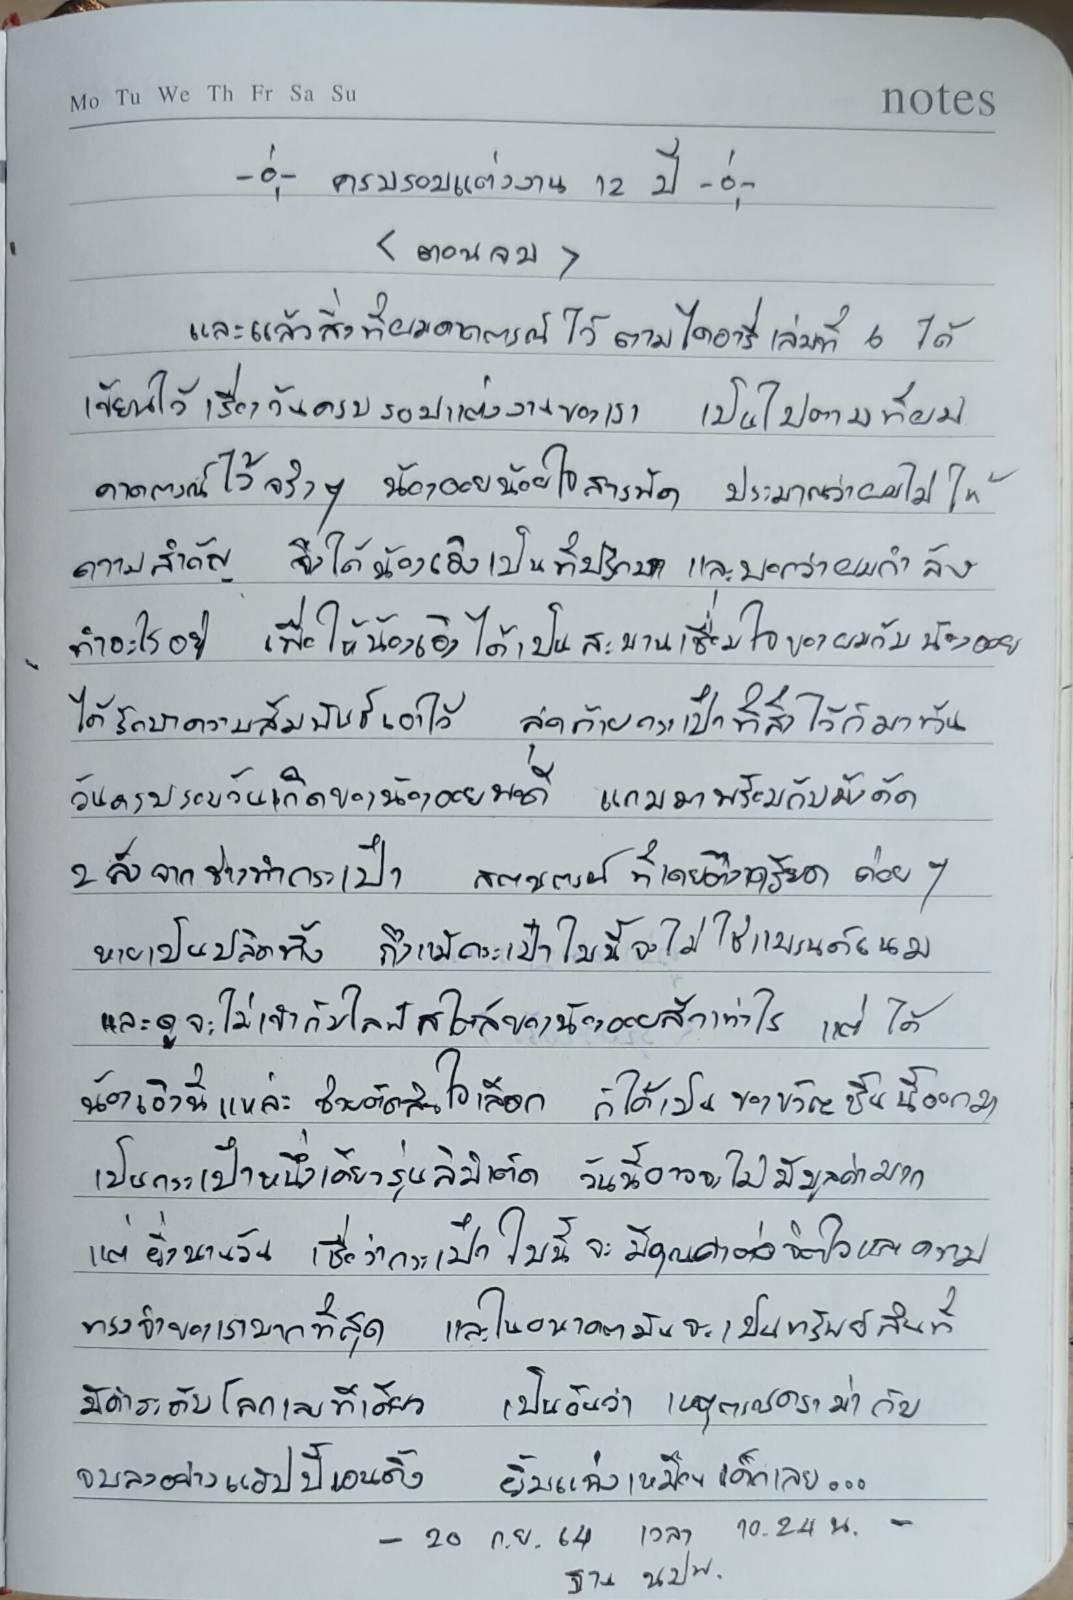 Mo Tu We Th Fr Sa Su
notes
ครบรอบแต่งงาน 12 ปี
< ตอนจบ >
และแล้วสิ่งที่ผมคาดการณ์ไว้ ตามไดอารี่เล่มที่ 6 ได้
เขียนไว้ เรื่องวันครบรอบแต่งงานของเรา เป็นไปตามที่ผม
คาดการณ์ไว้จริงๆ น้องออยน้อยใจสารพัด ประมาณว่าผมไม่ให้
ความสำคัญ จึงได้น้องเอิงเป็นที่ปรึกษา และบอกว่าผมกำลัง
ทำอะไรอยู่ เพื่อให้น้องเอิงได้เป็นสะพานเชื่อมใจของผมกับน้องออย
ได้รักษาความสัมพันธ์เอาไว้ สุดท้ายกระเป๋าที่สั่งไว้ก็มาทัน
วันครบรอบวันเกิดของน้องออยพอดี แถมมาพร้อมกับมังคุด
2 ลังจากช่างทำกระเป๋า สถานการณ์ที่เคยตึงเครียด ค่อยๆ
หายเป็นปลิดทิ้ง ถึงแม้กระเป๋าใบนี้จะไม่ใช่แบรนด์เนม
และดูจะไม่เข้ากับไลฟ์สไตล์ของน้องออยสักเท่าไร แต่ได้
น้องเอิงนี่แหล่ะ ช่วยตัดสินใจเลือก ก็ได้เป็นของขวัญชิ้นนี้ออกมา
เป็นกระเป๋าหนึ่งเดียวรุ่นลิมิเต็ด วันนี้อาจจะไม่มีมูลค่ามาก
แต่ยิ่งนานวัน เชื่อว่ากระเป๋าใบนี้จะมีคุณค่าต่อจิตใจและความ
ทรงจำของเรามากที่สุด และในอนาคตมันจะเป็นทรัพย์สินที่
มีค่าระดับโลกเลยทีเดียว เป็นอันว่า เหตุการณ์ดราม่ากับ
จบลงอย่างแฮปปี้เอนดิ้ง ยิ้มแฉ่งเหมือนเด็กเลย...
- 20 ก.ย. 64 เวลา 10.24 น. -
ฐาน นปพ.